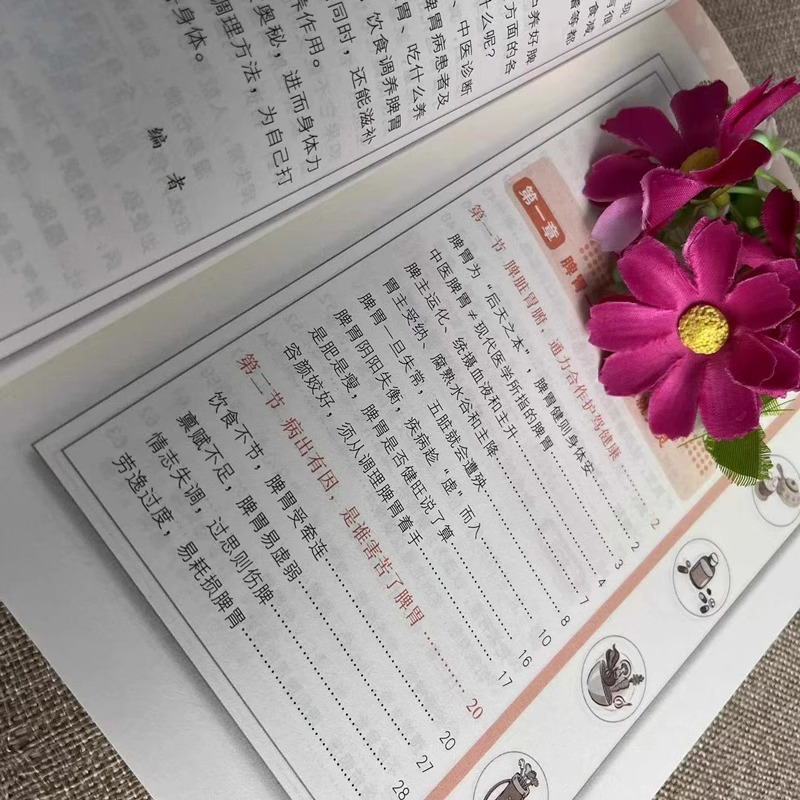 现
有很
等都
养好脾
方面的各
什么呢？
、中医诊断
脾胃病患者及
胃、吃什么养
饮食调养脾胃
同时，还能滋补
养作用。
奥秘，进而身体力
调理方法，为自己打
身体。
编 者
第一章 脾胃
第一节 脾脏胃腑，通力合作护驾健康 2
脾胃为“后天之本”，脾胃健则身体安 2
中医脾胃≠现代医学所指的脾胃 3
脾主运化、统摄血液和主升 4
胃主受纳、腐熟水谷和主降 7
脾胃一旦失常，五脏就会遭殃 8
脾胃阴阳失衡，疾病趁“虚”而入 10
是肥是瘦，脾胃是否健旺说了算 16
容颜姣好，须从调理脾胃着手 17
第二节 病出有因，是谁害苦了脾胃 20
饮食不节，脾胃受牵连 20
禀赋不足，脾胃易虚弱 27
情志失调，过思则伤脾 28
劳逸过度，易耗损脾胃